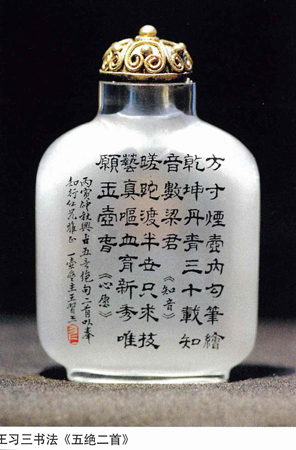 方寸煙壺內勾筆繪
乾坤丹青三十載知
音數梁君《知音》
蹉跎渡半世只求技
藝真嘔血育新秀唯
願玉壺春《心愿》
丙寅仲秋興占五言絕句二首以奉
知行仁兄雅正 一壺叟王習三
王习三书法《五绝二首》